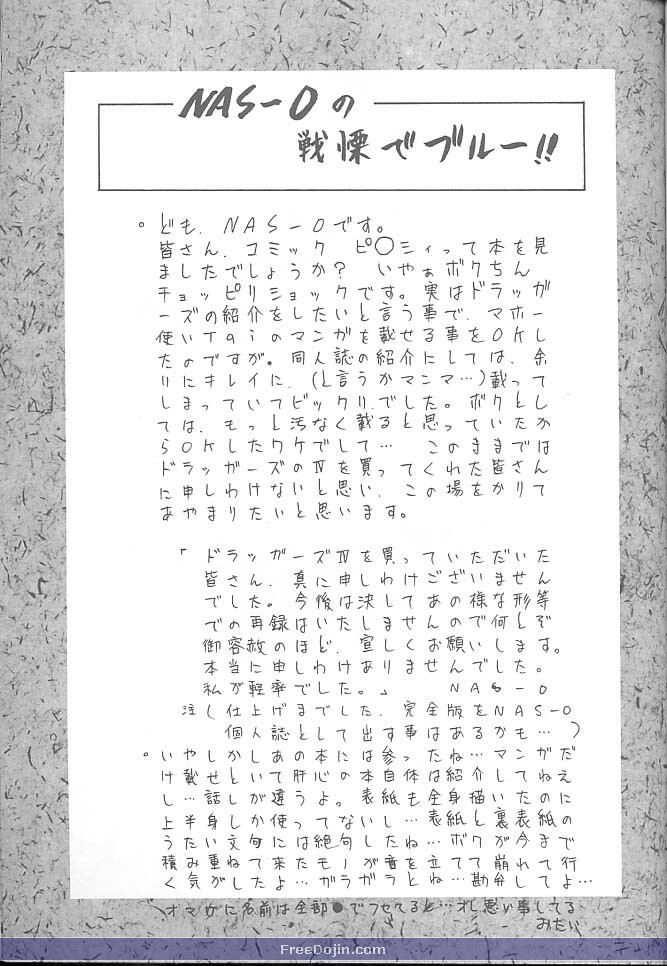 NAS-Oの
戦慄でブルー!!
。ども、NAS-Oです。
皆さん、コミック ピ〇シィって本を見
ましたでしょうか? いやぁボクちん
チョッピリショックです。実はドラッガ
ーズの紹介をしたいと言う事で、マホー
使いTaiのマンガを載せる事をOKし
たのですが。同人誌の紹介にしては、余
りにキレイに、(と言うかマンマ…)載って
しまっていてビックリでした。ボクとし
ては、もっと汚なく載ると思っていたか
らOKしたワケでして… このままでは
ドラッガーズのⅣを買ってくれた皆さん
に申しわけないと思い、この場をかりて
あやまりたいと思います。
「ドラッガーズⅣを買っていただいた
皆さん、真に申しわけございません
でした。今後は決してあの様な形等
での再録はいたしませんので何とぞ
御容赦のほど、宜しくお願いします。
本当に申しわけありませんでした。
私が軽率でした。」 NAS-O
注(仕上げまでした、完全版をNAS-O
個人誌として出す事はあるかも…)
。いやしかしあの本には参ったね…マンガだ
け載せといて肝心の本自体は紹介してねえ
し…話しが違うよ。表紙も全身描いたのに
上半身しか使ってないし…表紙と裏表紙の
うたい文句には絶句したね…ボクが今まで
積み重ねて来たモノが音を立てて崩れて行
く気がしたよ…ガラガラとね…勘弁してよ…
オマケに名前は全部●でフセてると…オレ悪い事してる
みたい
FreeDojin.com